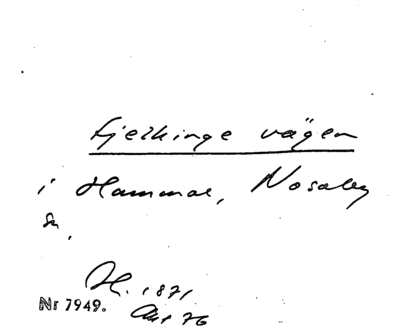 Fjelkinge vägen
i Hammar, Nosaby
sn.
H. 1871
Nr 7949. Akt 76